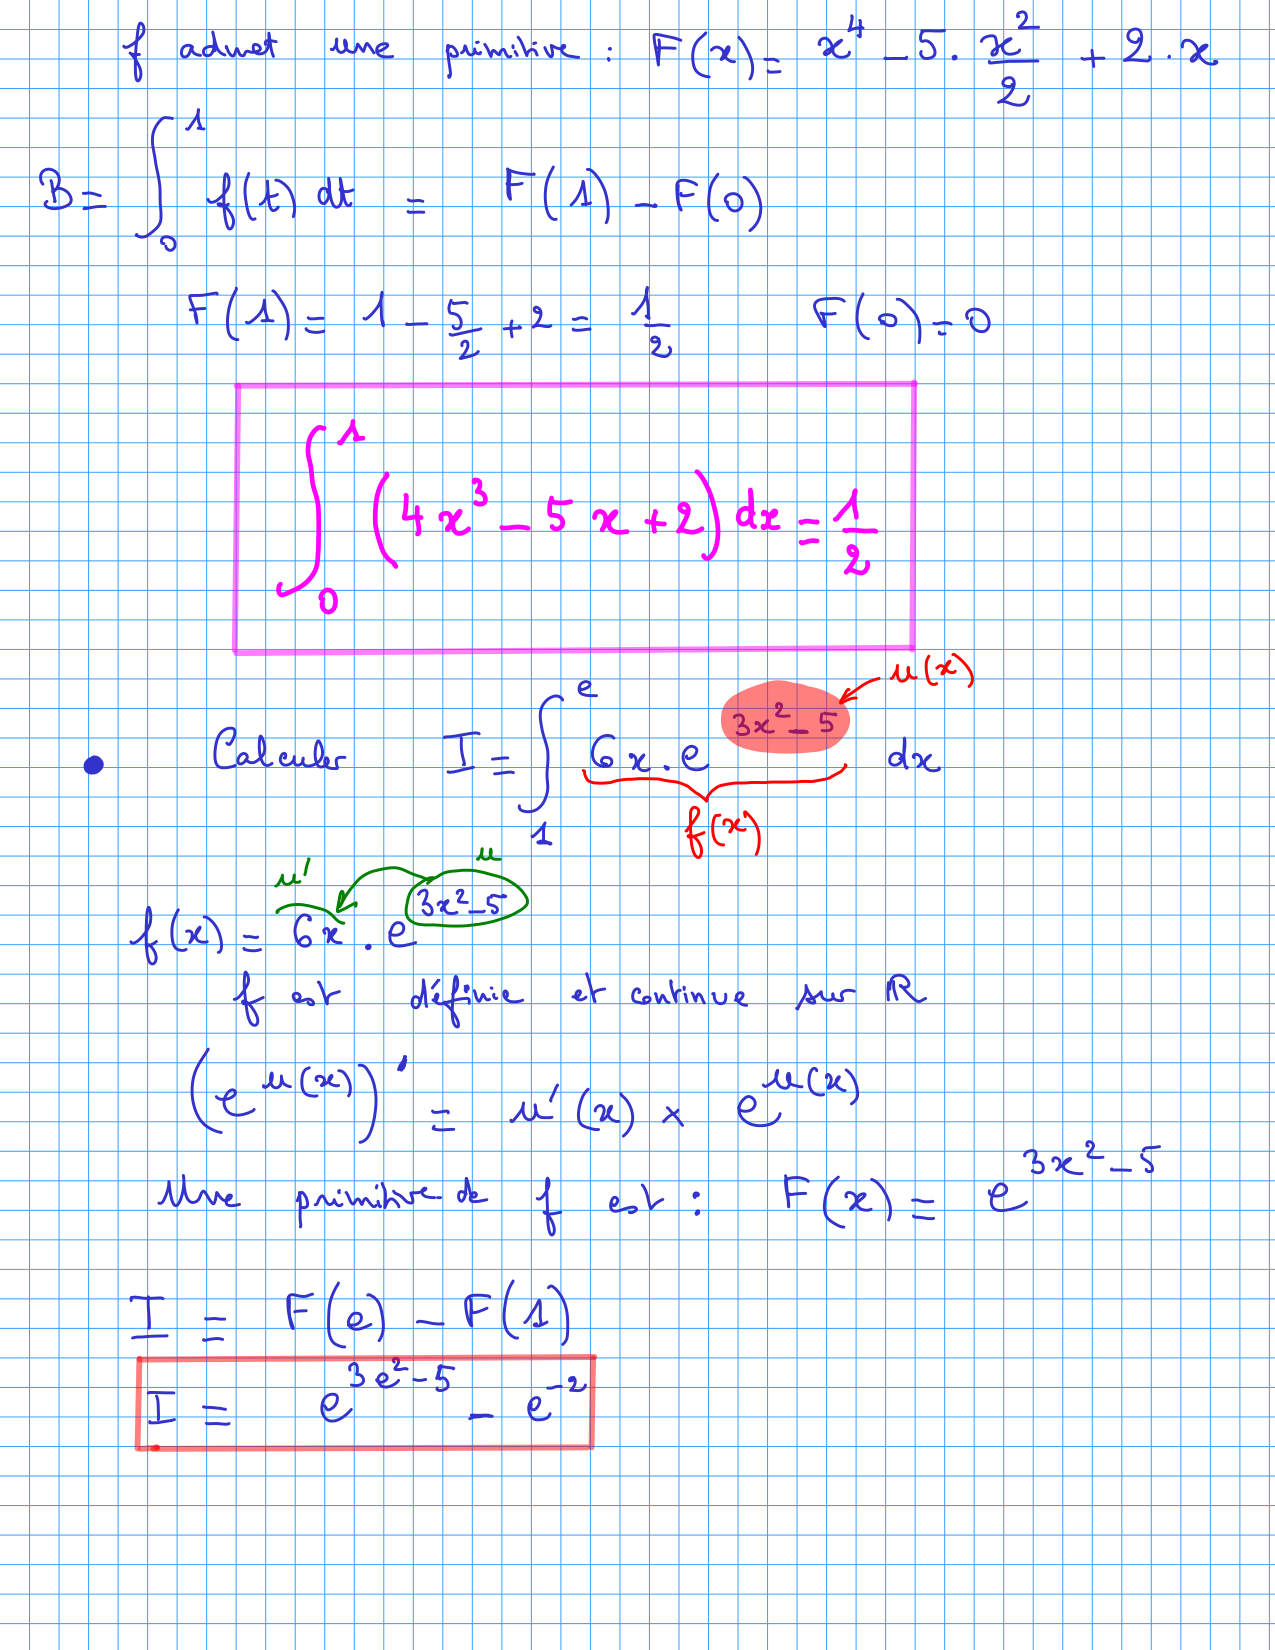 f admet une primitive : F(x) = x⁴ - 5 . x²/2 + 2 . x
B = ∫₀¹ f(t) dt = F(1) - F(0)
F(1) = 1 - 5/2 + 2 = 1/2 F(0) = 0
∫₀¹ (4x³ - 5x + 2) dx = 1/2
u(x)
• Calculer I = ∫₁ᵉ 6x . e^(3x² - 5) dx
f(x)
u' u
f(x) = 6x . e^(3x² - 5)
f est définie et continue sur ℝ
(e^(u(x)))' = u'(x) × e^(u(x))
Une primitive de f est : F(x) = e^(3x² - 5)
I = F(e) - F(1)
I = e^(3e² - 5) - e^(-2)